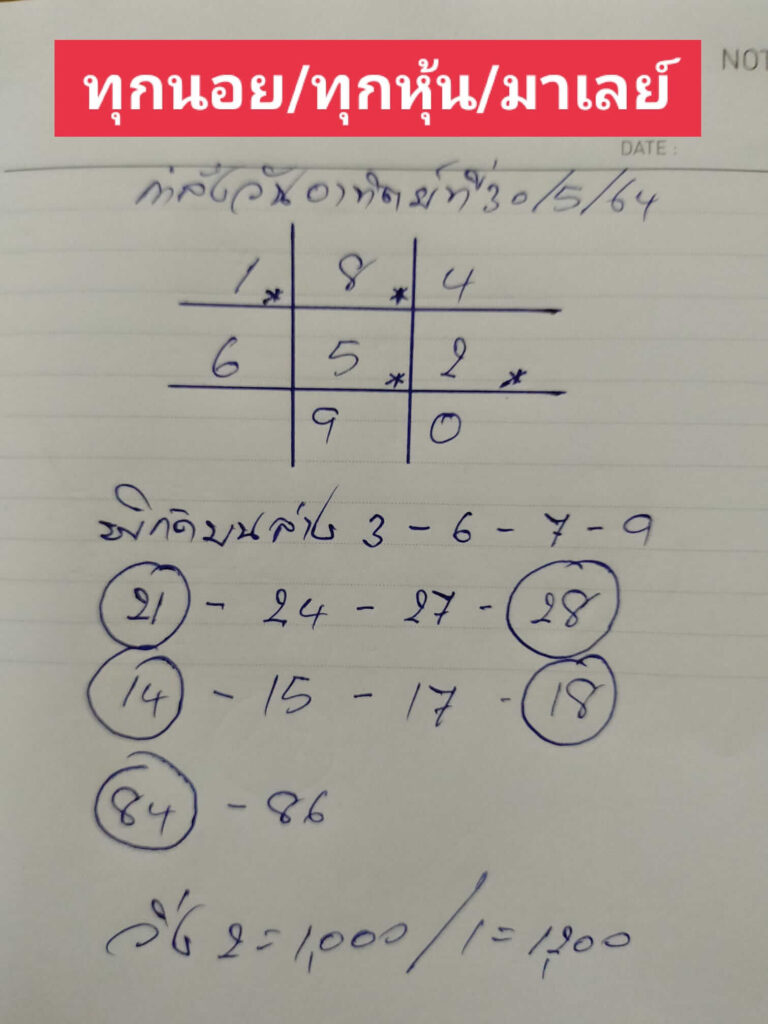 ทุกนอย/ทุกหุ้น/มาเลย์
NOT
DATE :
กำลังวันอาทิตย์ที่ 30/5/64
1* 8* 4
6 5* 2*
9 0
พิกัดบนล่าง 3 - 6 - 7 - 9
21 - 24 - 27 - 28
14 - 15 - 17 - 18
84 - 86
วิ่ง 2 = 1,000 / 1 = 1,200